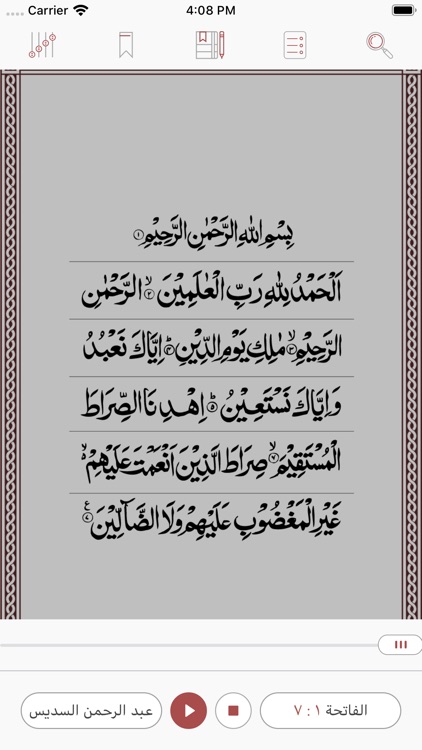 Carrier 4:08 PM
بِسْمِ اللهِ الرَّحْمٰنِ الرَّحِيْمِ ۝١
اَلْحَمْدُ لِلّٰهِ رَبِّ الْعٰلَمِيْنَ ۙ۝٢ الرَّحْمٰنِ
الرَّحِيْمِ ۙ۝٣ مٰلِكِ يَوْمِ الدِّيْنِ ؕ۝٤ اِيَّاكَ نَعْبُدُ
وَاِيَّاكَ نَسْتَعِيْنُ ؕ۝٥ اِهْدِنَا الصِّرَاطَ
الْمُسْتَقِيْمَ ۙ۝٦ صِرَاطَ الَّذِيْنَ اَنْعَمْتَ عَلَيْهِمْ ۙ
غَيْرِ الْمَغْضُوْبِ عَلَيْهِمْ وَلَا الضَّآلِّيْنَ ۝٧ ع
الفاتحة ١ : ٧
عبد الرحمن السديس